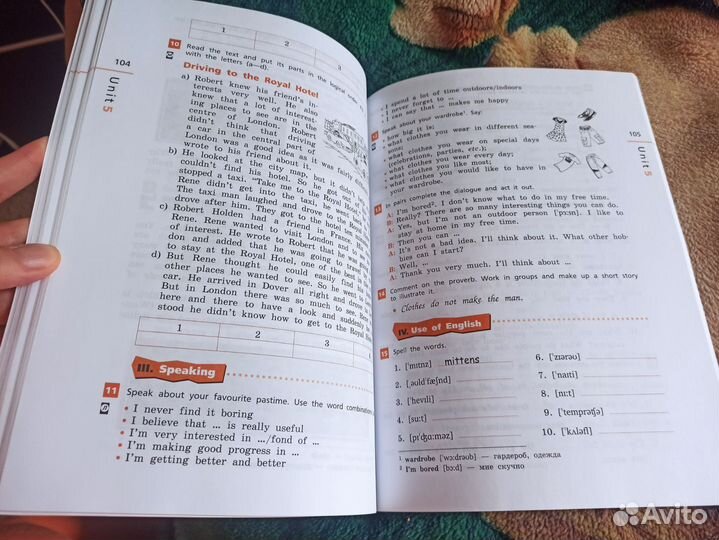 104
Unit 5
1 2 3
10 Read the text and put its parts in the logical order
with the letters (a—d).
Driving to the Royal Hotel
a) Robert knew his friend's in-
terests very well. He also
knew that a lot of interest-
ing places to see are in the
centre of London. Robert
didn't think that driving
a car in the central part of
London was a good idea as it was fairly
wrote to his friend about it.
b) He looked at the city map, but it didn't
couldn't find his hotel. So he got out
stopped a taxi. "Take me to the Royal Hotel,"
Rene didn't get into the taxi, he went
The taxi man laughed and drove to the Royal
drove after him. They got to the hotel ten
c) Robert Holden had a friend in France. His
Rene. Rene wanted to visit London and to
of interest. He wrote to Robert that he was
don and added that he was going to travel
to stay at the Royal Hotel, one of the best in
d) But Rene thought he could easily find his
other places he wanted to see. So he went to
car. He arrived in Dover all right and drove to
But in London there was so much to see. Rene
here and there to have a look and suddenly he
stood he didn't know how to get to the Royal
1 2 3 4
III. Speaking
11 Speak about your favourite pastime. Use the word combinations
• I never find it boring
• I believe that ... is really useful
• I'm very interested in .../fond of ...
• I'm making good progress in ...
• I'm getting better and better
• I spend a lot of time outdoors/indoors
• I never forget to ...
• I can say that ... makes me happy
12 Speak about your wardrobe¹. Say:
• how big it is;
• what clothes you wear in different sea-
sons;
• what clothes you wear on special days
(celebrations, parties, etc.);
• what clothes you wear every day;
• what clothes you like most;
• what clothes you would like to have in
your wardrobe.
105
Unit 5
13 In pairs complete the dialogue and act it out.
A: I'm bored². I don't know what to do in my free time.
B: Really? There are so many interesting things you can do.
A: Yes, but I'm not an outdoor person ['pɜ:sn]. I like to
stay at home in my free time.
B: Then you can ...
A: It's not a bad idea. I'll think about it. What other hob-
bies can I start?
B: Well, ...
A: Thank you very much. I'll think about ...
14 Comment on the proverb. Work in groups and make up a short story
to illustrate it.
• Clothes do not make the man.
IV. Use of English
15 Spell the words.
1. ['mɪtnz] mittens 6. ['zɪərəʊ]
2. [ˌəʊld'fæʃnd] 7. ['naɪti]
3. ['hevɪli] 8. [nɪ:t]
4. [su:t] 9. ['temprətʃə]
5. [pɪ'dʒɑ:məz] 10. ['kʌləfl]
¹ wardrobe ['wɔ:drəʊb] — гардероб, одежда
² I'm bored [bɔ:d] — мне скучно
Avito